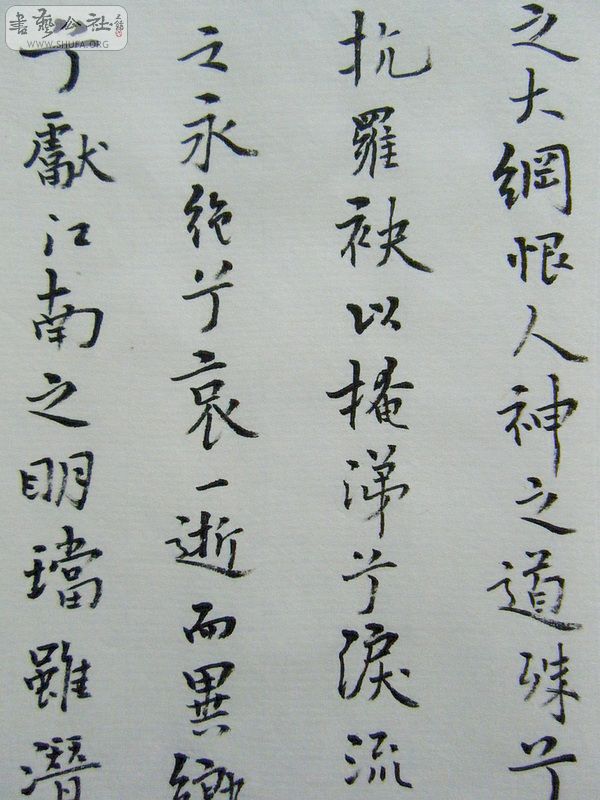 之大綱恨人神之道殊兮
抗羅袂以掩涕兮淚流
之永絶兮哀一逝而異鄉
兮獻江南之明璫雖潛
書藝公社
WWW.SHUFA.ORG